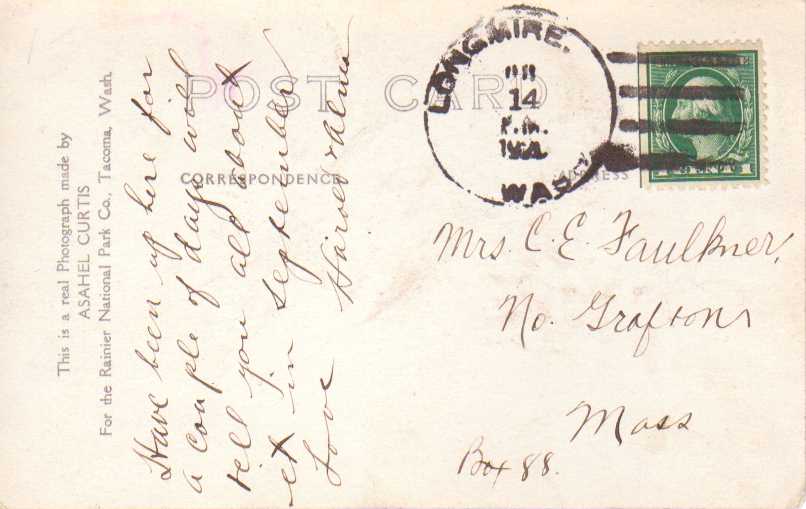 This is a real Photograph made by
ASAHEL CURTIS
For the Rainier National Park Co., Tacoma, Wash.
POST CARD
CORRESPONDENCE
ADDRESS
Have been up here for
a couple of days will
tell you all about
it in September
Love Harold &
LONGMIRE.
14
P.M.
WASH.
1 CENT 1
Mrs. C. E. Faulkner,
No. Grafton
Mass
Box 88.